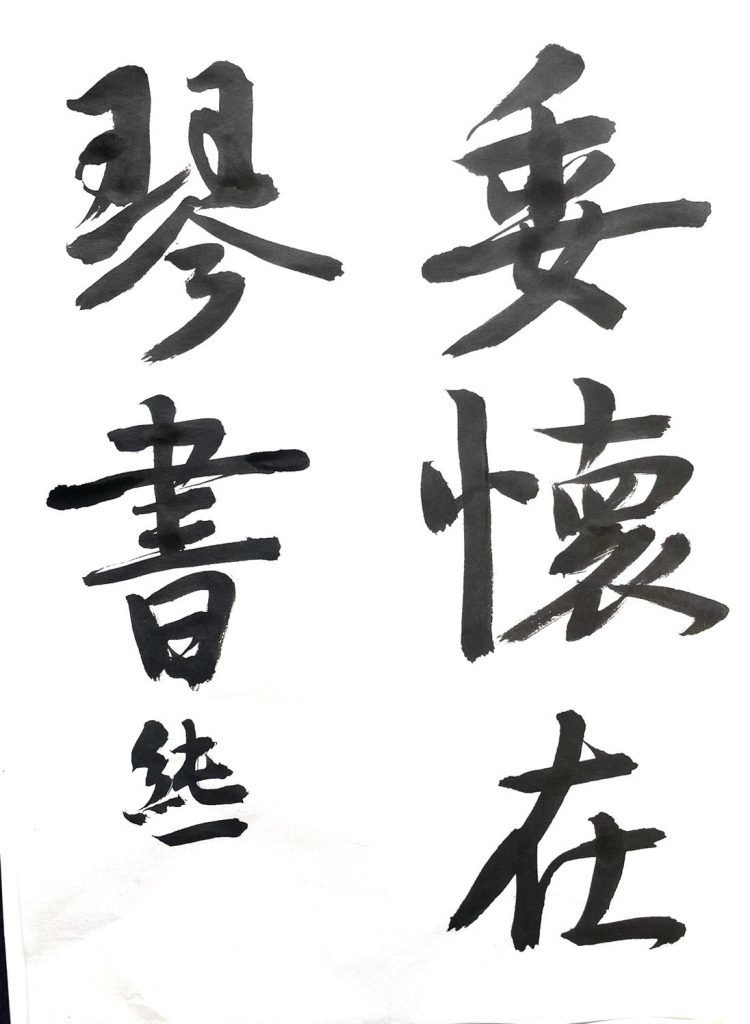 委懐在
琴書 純一